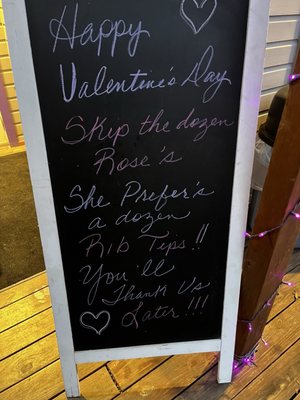 Happy
Valentine's Day
Skip the dozen
Rose's
She Prefer's
a dozen
Rib Tips!!
You'll
Thank Us
Later!!!